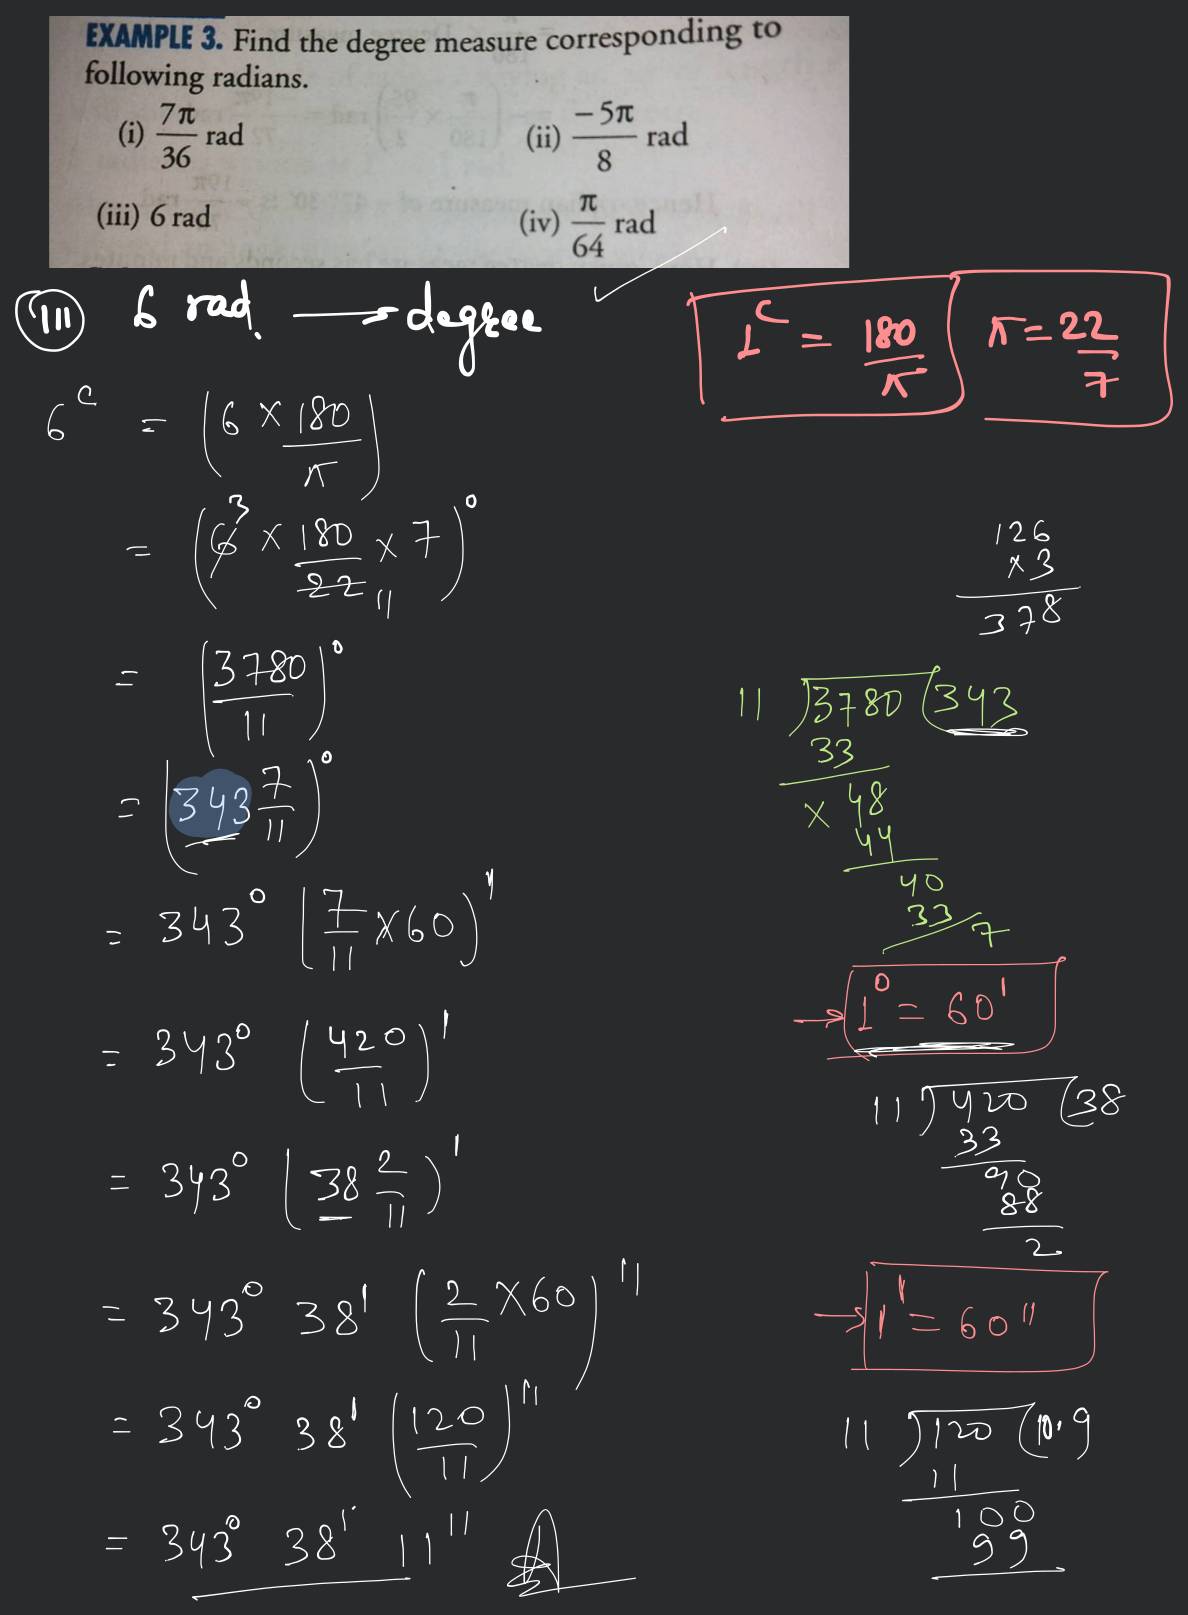 EXAMPLE 3. Find the degree measure corresponding to
following radians.
(i) 7π/36 rad (ii) −5π/8 rad
(iii) 6 rad (iv) π/64 rad
(III) 6 rad. ⟶ degree
1ᶜ = 180/π
π = 22/7
6ᶜ = (6 × 180/π)
= (6 3 × 180/22 11 × 7)⁰
= (3780/11)⁰
= (343 7/11)⁰
= 343⁰ (7/11 × 60)'
= 343⁰ (420/11)'
= 343⁰ (38 2/11)'
= 343⁰ 38' (2/11 × 60)"
= 343⁰ 38' (120/11)"
= 343⁰ 38' 11"
126
× 3
378
11 ) 3780 ( 343
33
× 48
44
40
33
7
→ 1⁰ = 60'
11 ) 420 ( 38
33
90
88
2
→ 1' = 60"
11 ) 120 ( 10.9
11
100
99